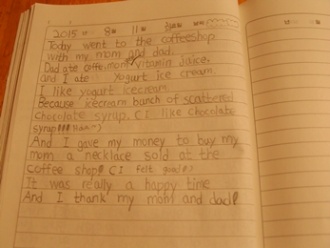 2015 8 11
Today went to the coffeeshop
with my mom and dad.
Dad ate coffe.mom vitamin Juice,
and I ate yogurt ice cream.
I like yogurt icecream.
Because icecream banch of scattered
chocolate syrup. CI like chocolate
syrup!!!
And I give my money to buy my
mom a necklace sold at the
coffee shop! CI felt good
It was really a happy time
And I thank my mom and dad!